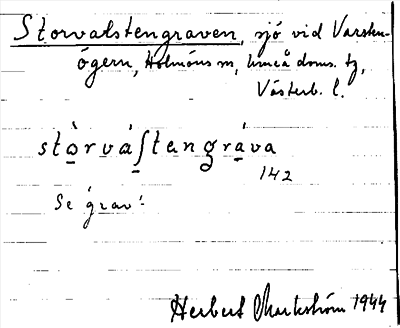 Storvalstengraven, sjö vid Varsten-
ögern, Holmöns sn, Umeå doms. tg,
Västerb. l.
stòrvàʃtengràva
142
Se grav:
Herbert Markström 1944